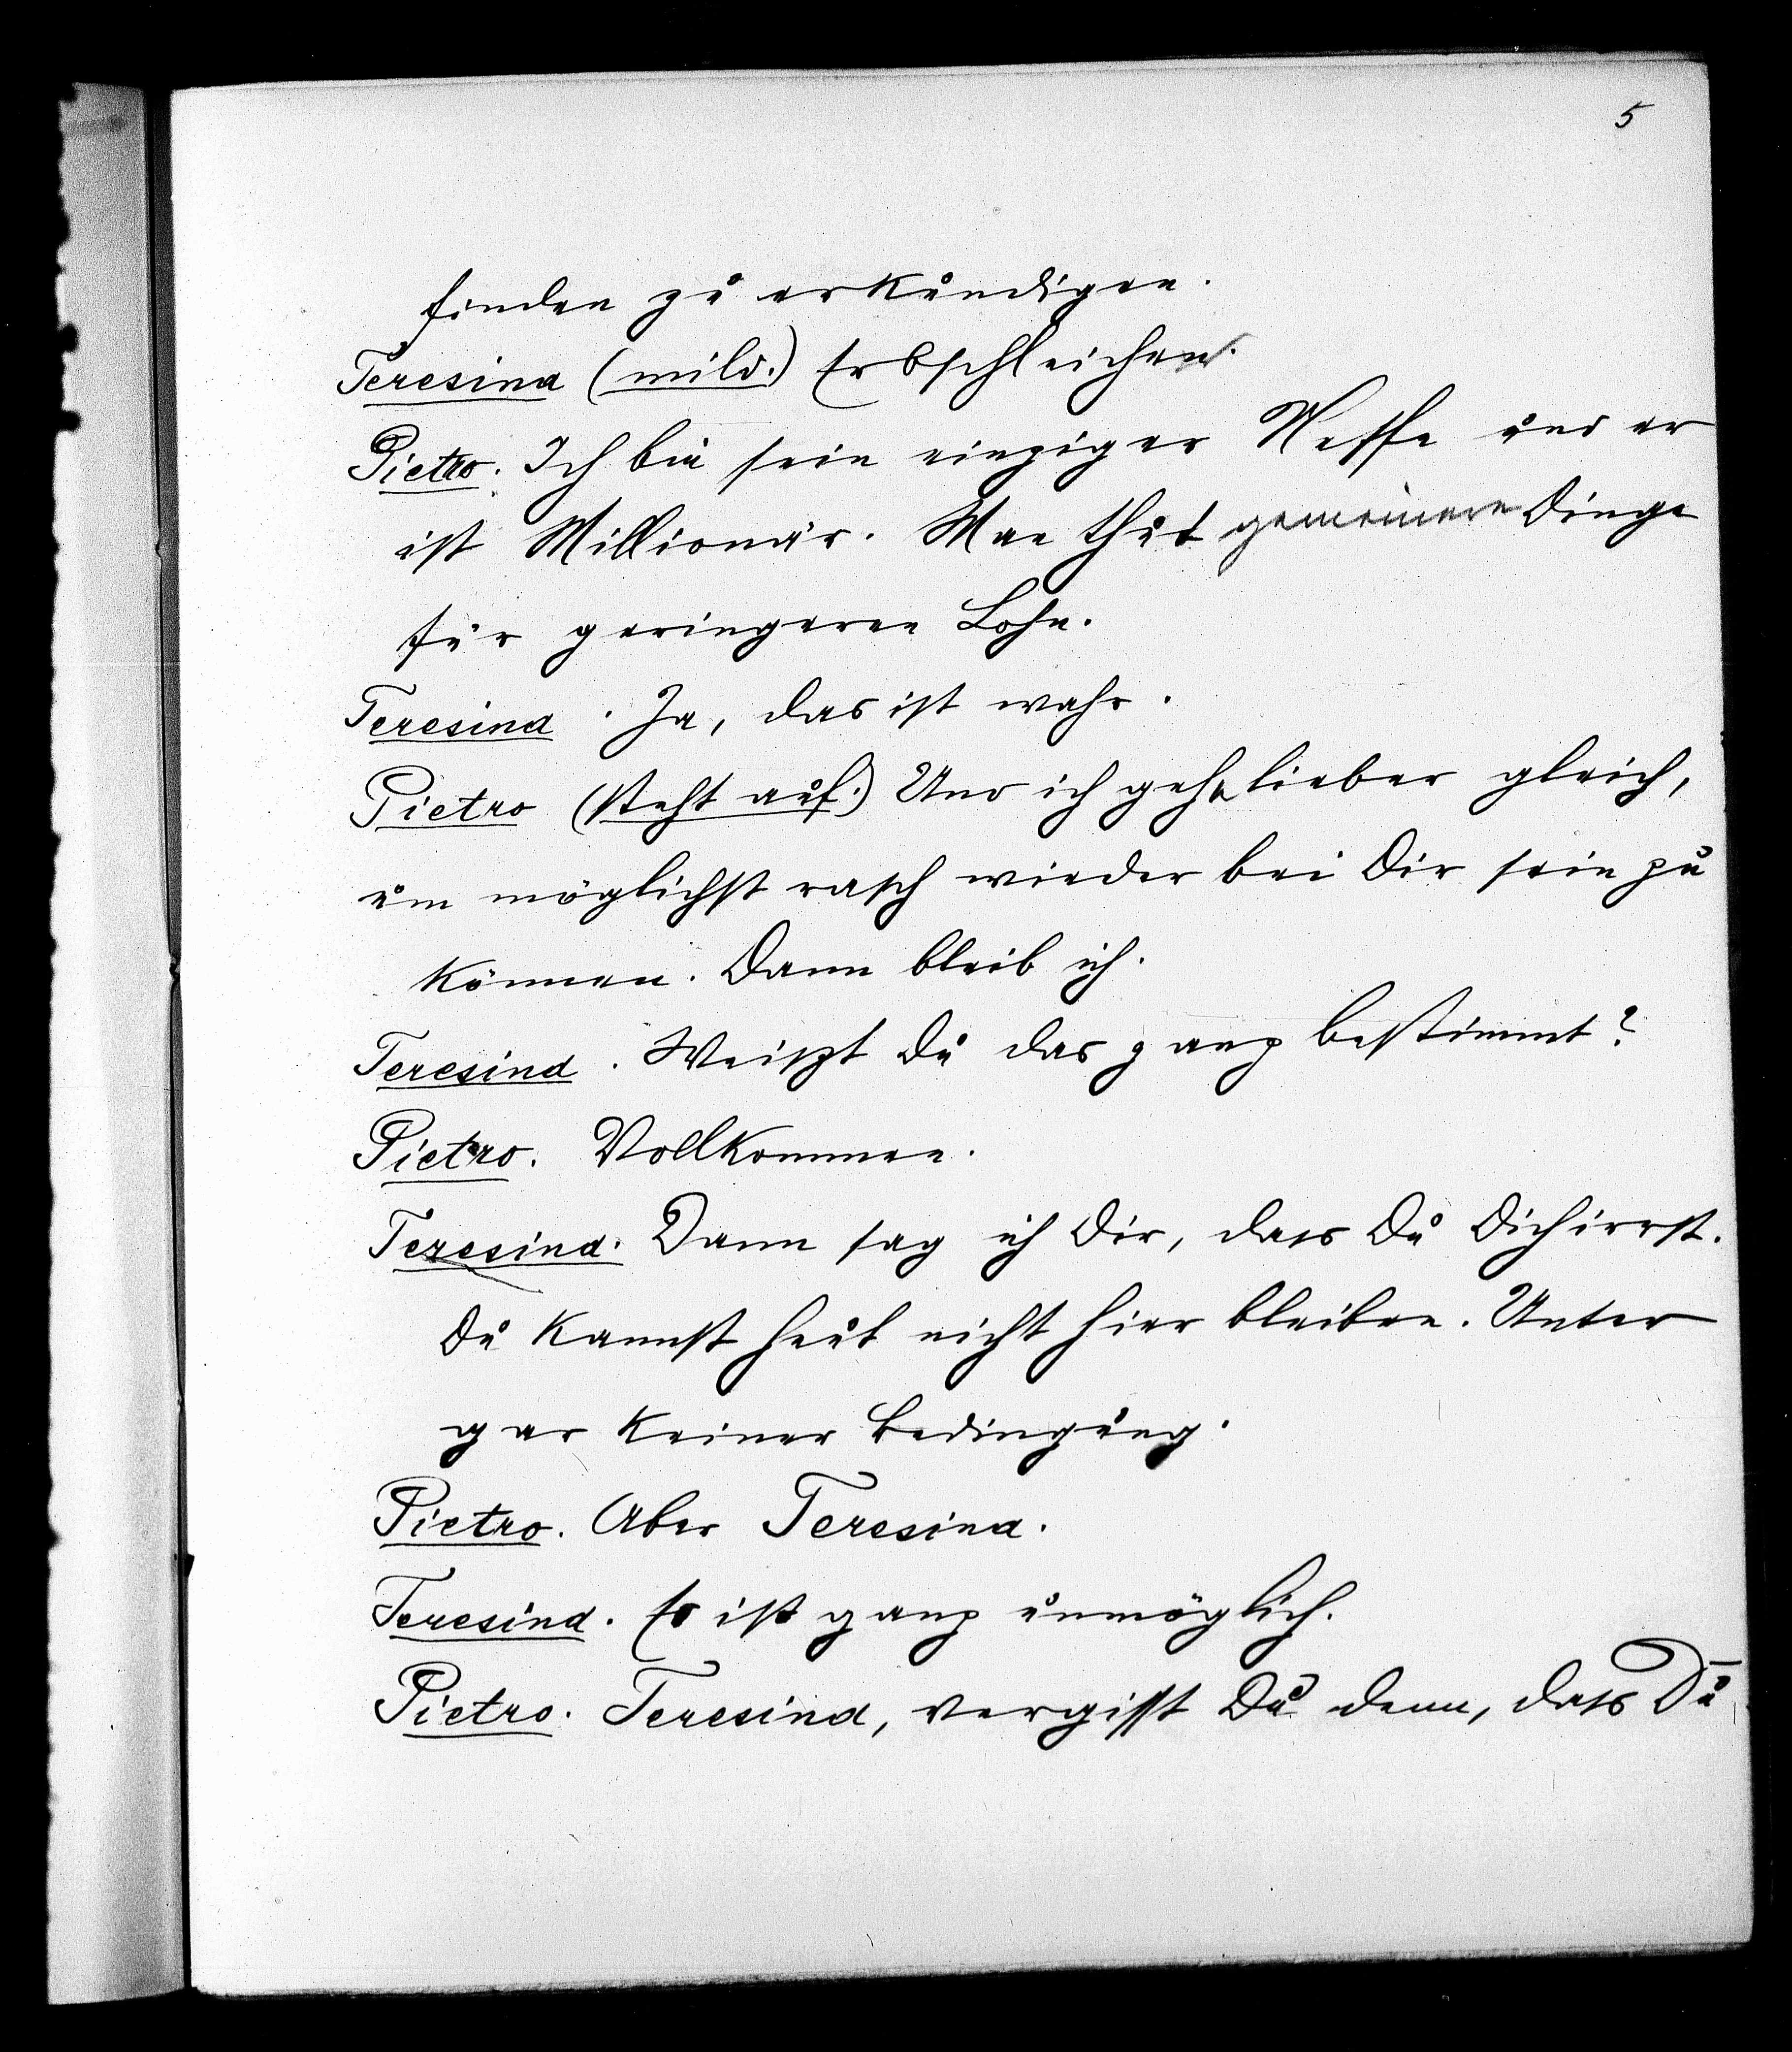 5
finden zu erkundigen.
Teresina (mild.) Erbschleicher.
Pietro. Ich bin sein einziger Neffe und er
ist Millionär. Man thut gemeinere Dinge
für geringeren Lohn.
Teresina. Ja, das ist wahr.
Pietro (steht auf.) Und ich geh lieber gleich,
um möglichst rasch wieder bei Dir sein zu
können. Dann bleib ich.
Teresina. Weiszt Du das ganz bestimmt?
Pietro. Vollkommen.
Teresina. Dann sag ich Dir, dass Du Dich irrst.
Du kannst heut nicht hier bleiben. Unter
gar keiner Bedingung.
Pietro. Aber Teresina.
Teresina. Es ist ganz unmöglich.
Pietro. Teresina, vergisst Du denn, dass Du